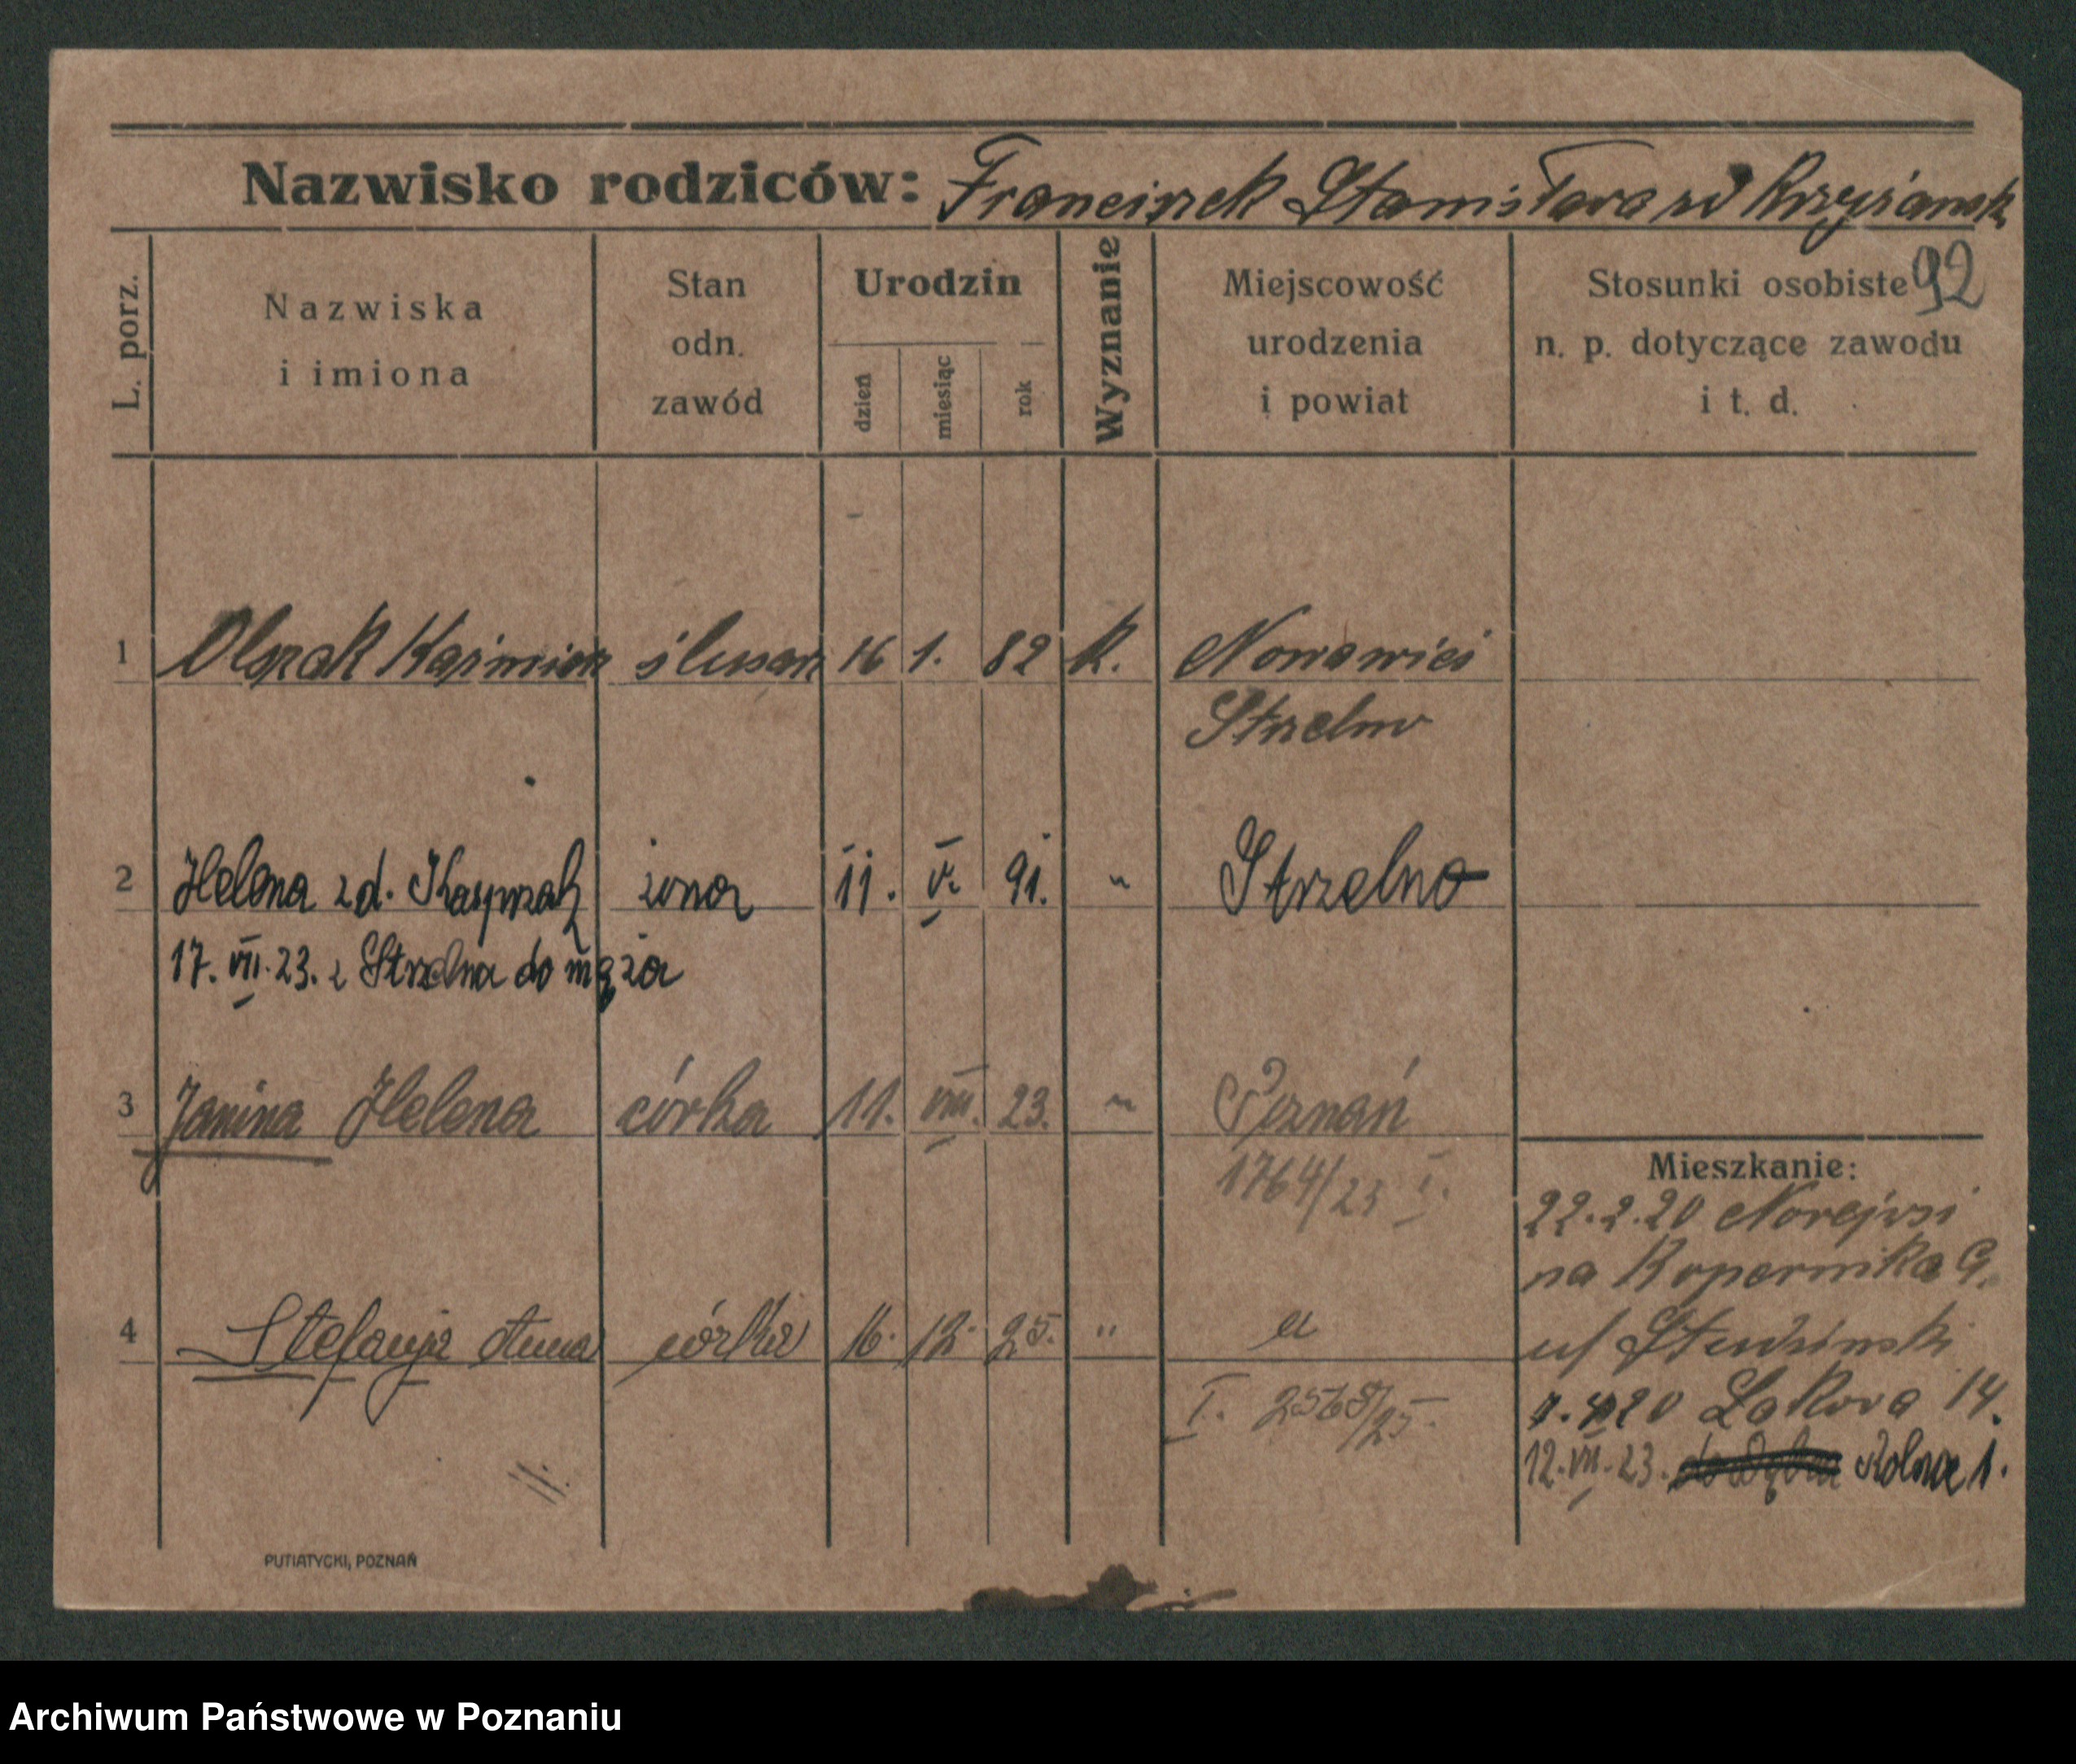 Nazwisko rodziców: Franciszek Stanisława zd Krzyżańsk
92
L. porz.
Nazwiska
i imiona
Stan
odn.
zawód
Urodzin
dzień
miesiąc
rok
Wyznanie
Miejscowość
urodzenia
i powiat
Stosunki osobiste
n. p. dotyczące zawodu
i t. d.
1 Olszak Kazimierz ślusarz 16 1. 82 K. Nowawieś
Strzelno
2 Helena zd. Kasprzak żona 11. V. 91. " Strzelno
17. VII. 23. z Strzelna do męża
3 Janina Helena córka 11. VIII. 23. " Poznań
1764/23 I.
4 Stefanja Anna córka 16. 12. 25. " "
I. 2568/25.
Mieszkanie:
22.2.20 Norejwsi
na Kopernika 9.
u/ Studzinski
20 Łąkowa 14.
12. VII. 23. Rolna 1.
PUTIATYCKI, POZNAŃ
Archiwum Państwowe w Poznaniu